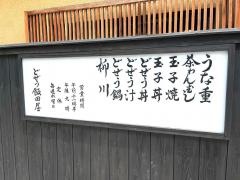 うな重
茶わんむし
玉子焼
玉子丼
どぜう丼
どぜう汁
どぜう鍋
柳川
営業時間
定休
どぜう飯田屋